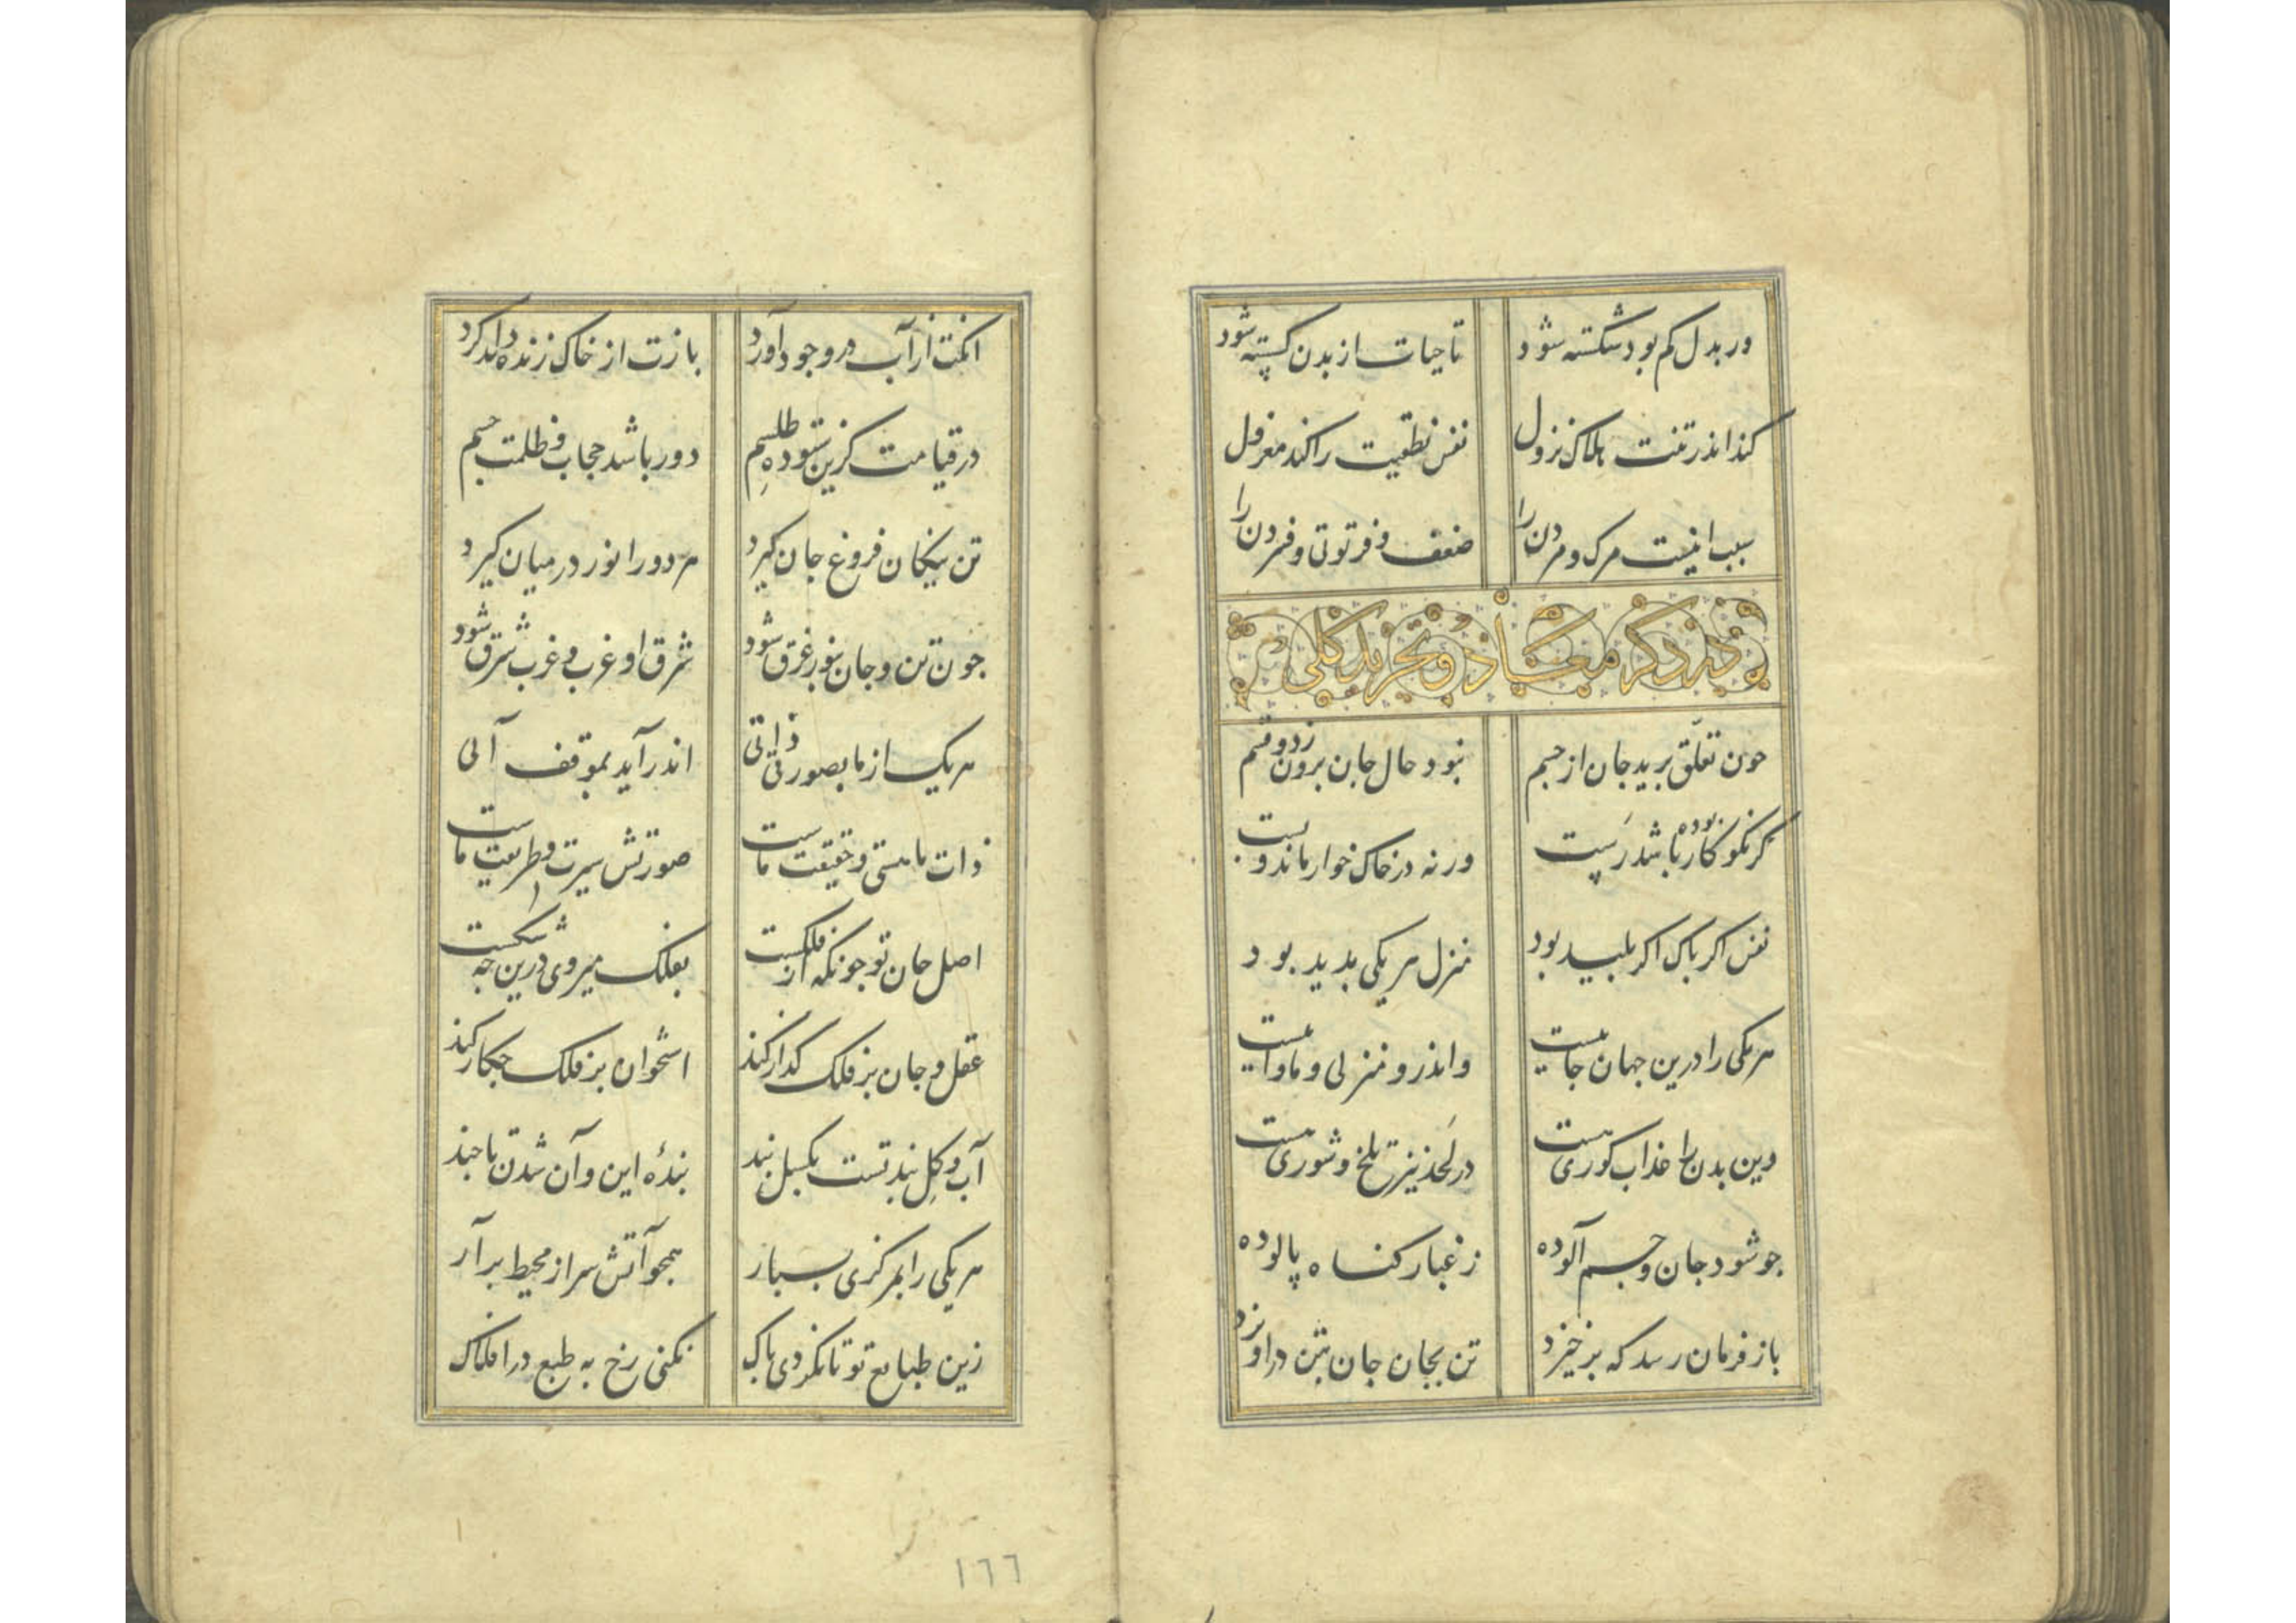 ور بدل کم بود شکسته شود تا حیات از بدن کسسته شود
کند اندر تنت هلاک نزول نفس نطقیت را کند معزول
سبب اینست مرک و مردن را ضعف و فرتوتی و فسردن را
در ذکر معاد و تجرید کلی
جون تعلق برید جان از جسم نبود حال جان برون ز دو قسم
کر نکو کار بوده باشد رست ورنه در خاک خوار ماند و بست
نفس اکر باک اکر بلید بود منزل هر یکی بدید بود
هر یکی را درین جهان جاییست واندرو منزلی و ماواییست
وین بدن را عذاب کوری هست در لحد نیز تلخ و شوری هست
جو شود جان و جسم آلوده ز غبار کناه پالوده
باز فرمان رسد که بر خیزد تن بجان جان بتن در اویزد
انکت از آب در وجود آورد بازت از خاک زنده داند کرد
در قیامت کزین شود ده طلسم دور باشد حجاب و ظلمت جسم
تن نیکان فروغ جان کیرد هر دو را نور در میان کیرد
جون تن و جان بنور غرق شود شرق او غرب و غرب شرق شود
هر یک از ما بصورتی ذاتی اندر آید بموقف آتی
ذات ما هستی و حقیقت ماست صورتش سیرت و طریقت ماست
اصل جان تو جونکه از فلکست بفلک میروی درین جه شکست
عقل و جان بر فلک کذار کند استخوان بر فلک جکار کند
آب و کل بند تست بکسل بند بندهٔ این و آن شدن تا جند
هر یکی را بمرکزی بسبار همجو آتش سر از محیط برآر
زین طبایع تو تا نکردی باک نکنی رخ به طبع در افلاک
١٦٦